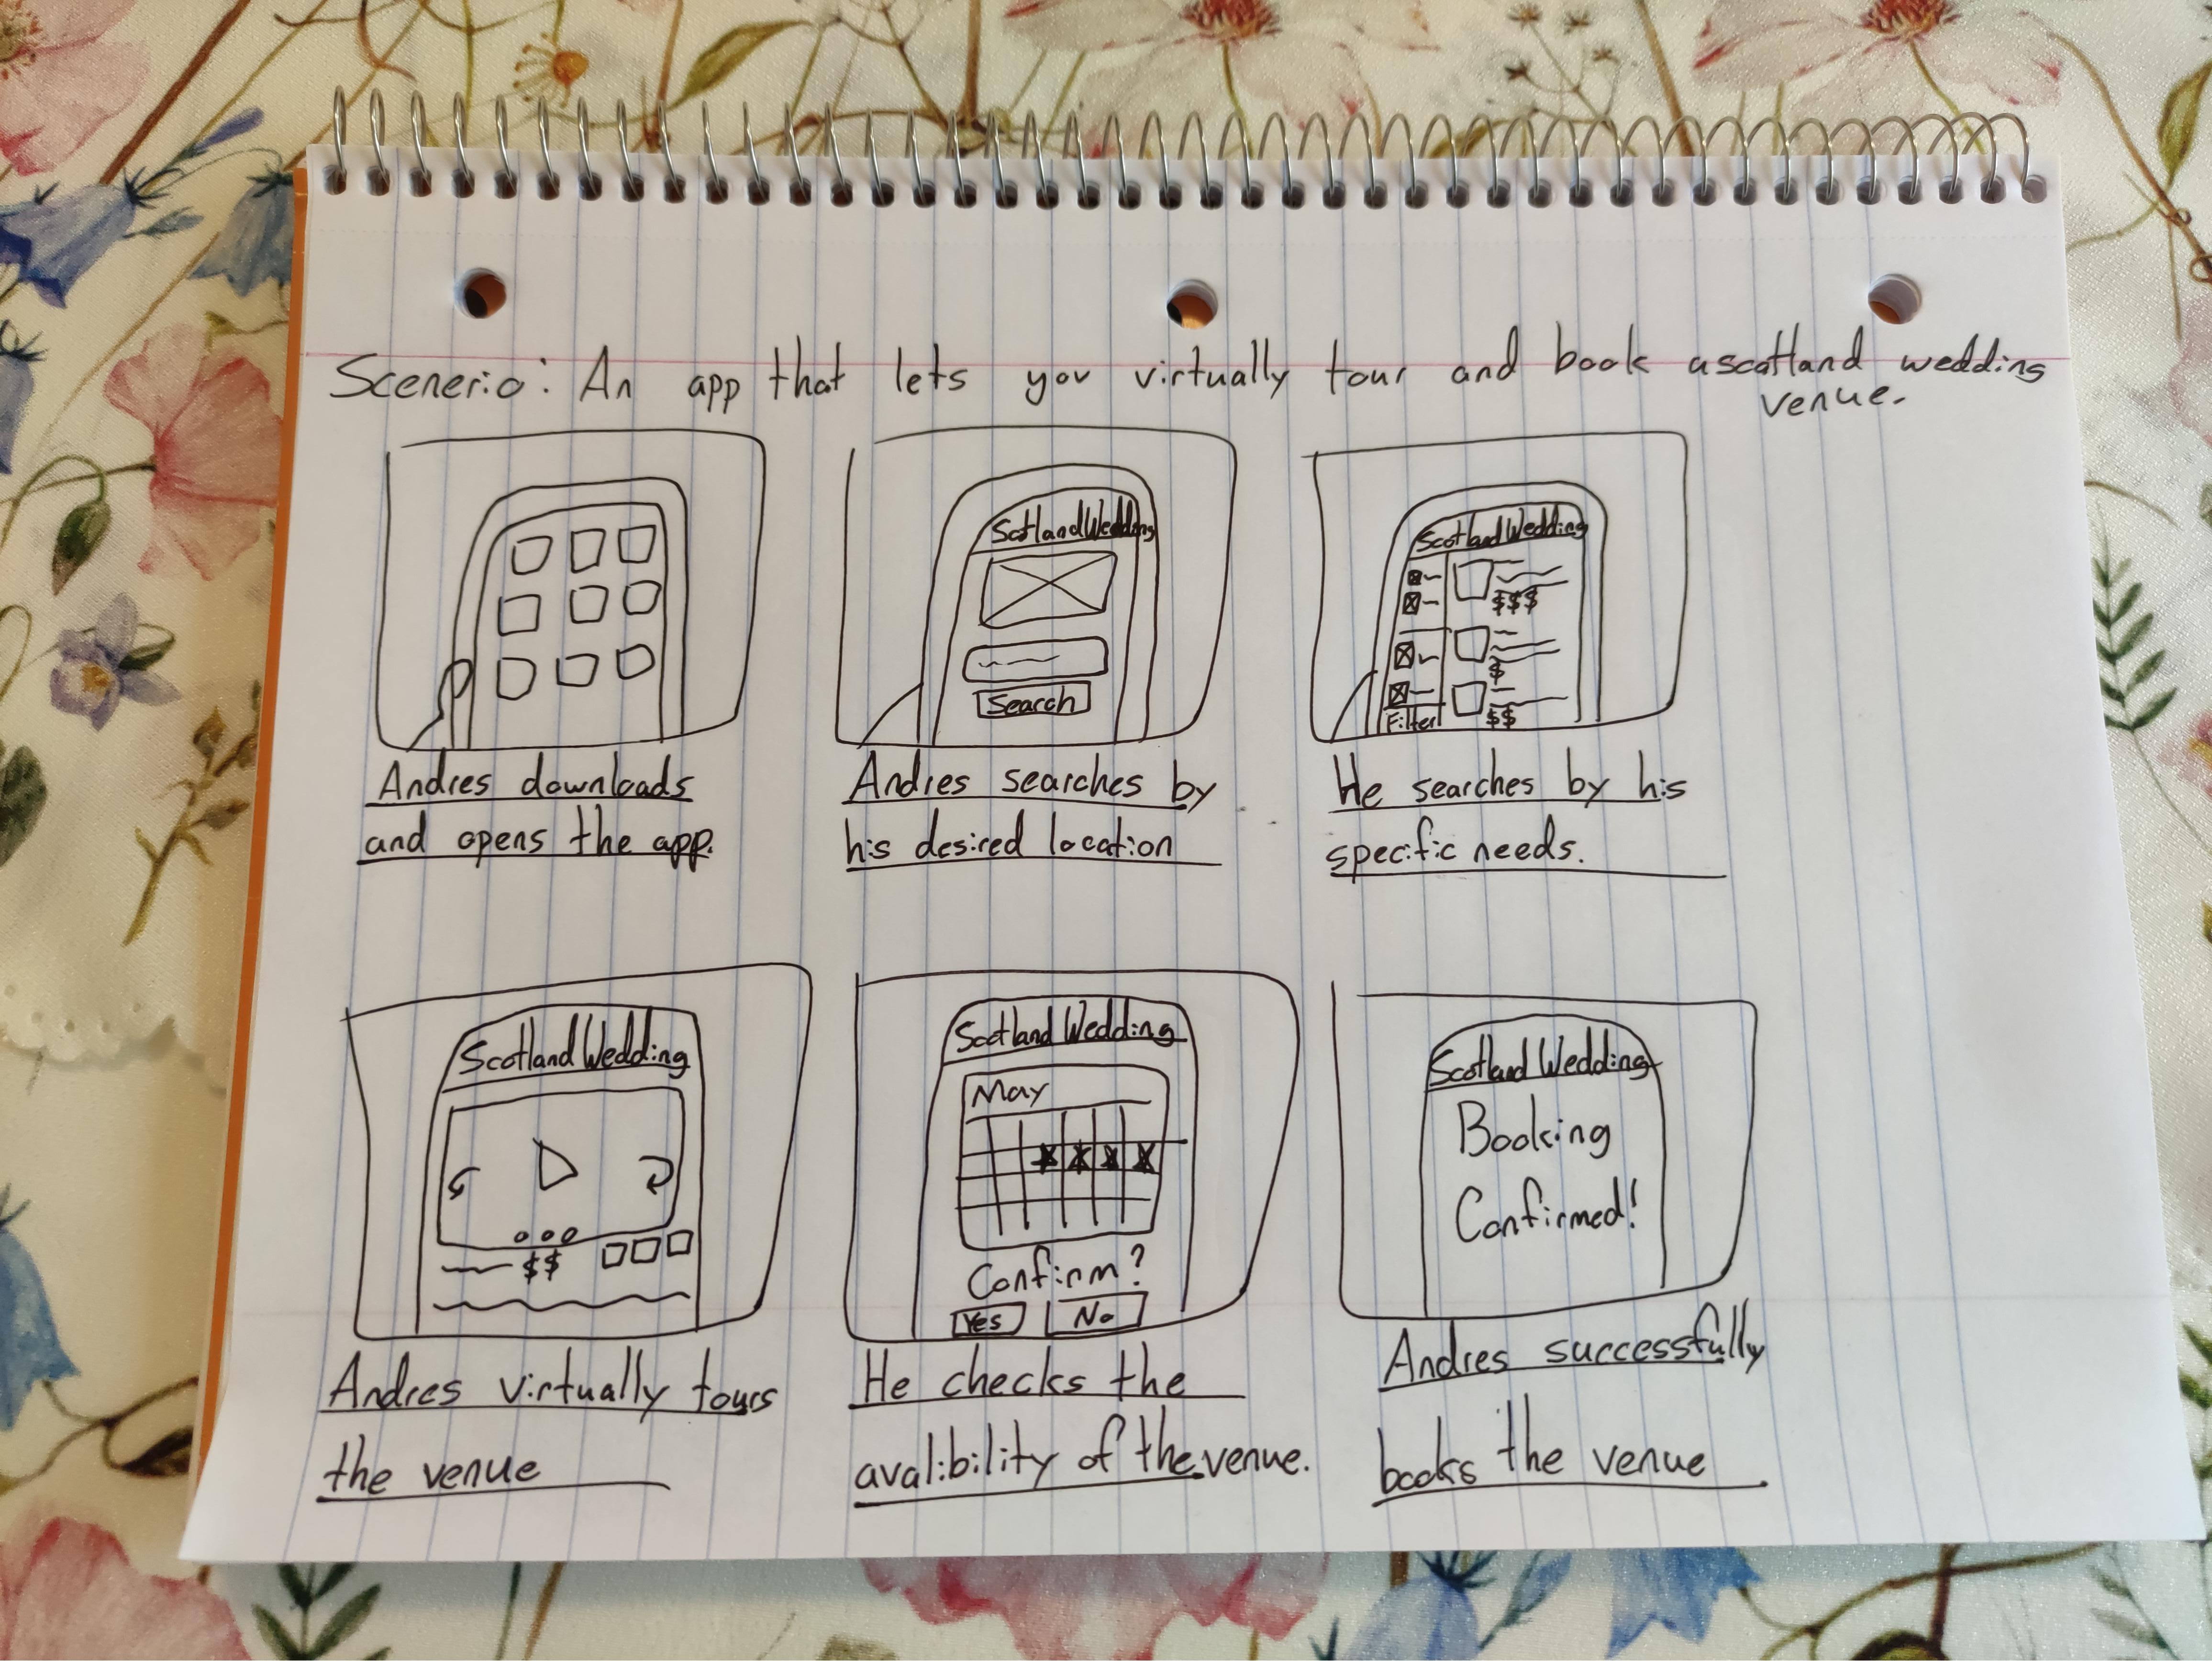 Scenerio: An app that lets you virtually tour and book a scotland wedding
venue.
Scotland Wedding
Search
Scotland Wedding
$$$
$
$$
Filter
Andres downloads
and opens the app.
Andres searches by
his desired location
He searches by his
specific needs.
Scotland Wedding
$$
Scotland Wedding
May
Confirm?
Yes No
Scotland Wedding
Booking
Confirmed!
Andres virtually tours
the venue
He checks the
avalibility of the venue.
Andres successfully
books the venue